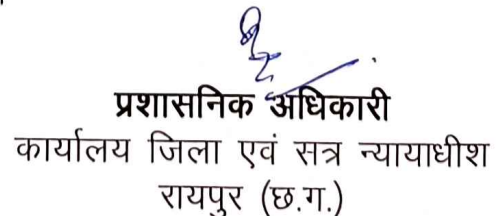 प्रशासनिक अधिकारी
कार्यालय जिला एवं सत्र न्यायाधीश
रायपुर (छ.ग.)